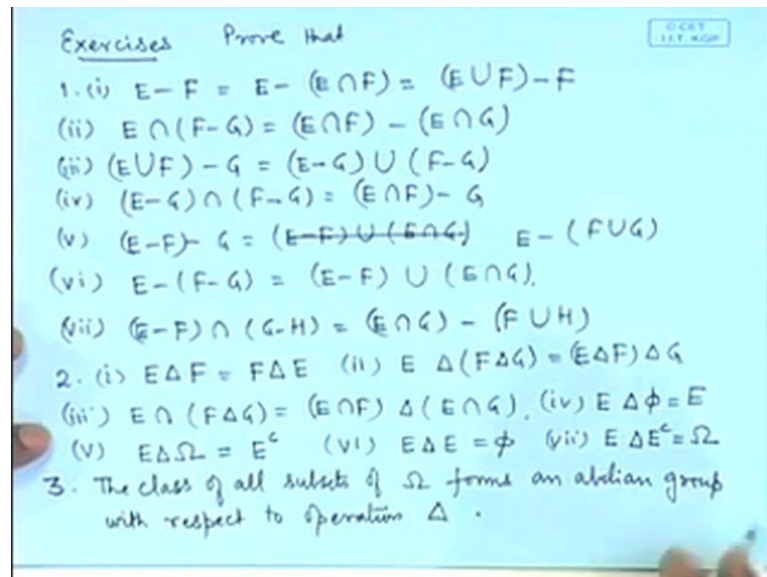 Exercises Prove that
© CET
I.I.T. KGP
1. (i) E - F = E - (E ∩ F) = (E ∪ F) - F
(ii) E ∩ (F - G) = (E ∩ F) - (E ∩ G)
(iii) (E ∪ F) - G = (E - G) ∪ (F - G)
(iv) (E - G) ∩ (F - G) = (E ∩ F) - G
(v) (E - F) - G = (E - F) ∪ (E ∩ G) E - (F ∪ G)
(vi) E - (F - G) = (E - F) ∪ (E ∩ G).
(vii) (E - F) ∩ (G - H) = (E ∩ G) - (F ∪ H)
2. (i) E Δ F = F Δ E (ii) E Δ (F Δ G) = (E Δ F) Δ G
(iii) E ∩ (F Δ G) = (E ∩ F) Δ (E ∩ G). (iv) E Δ ϕ = E
(v) E Δ Ω = Eᶜ (vi) E Δ E = ϕ (vii) E Δ Eᶜ = Ω
3. The class of all subsets of Ω forms an abelian group
with respect to operation Δ .